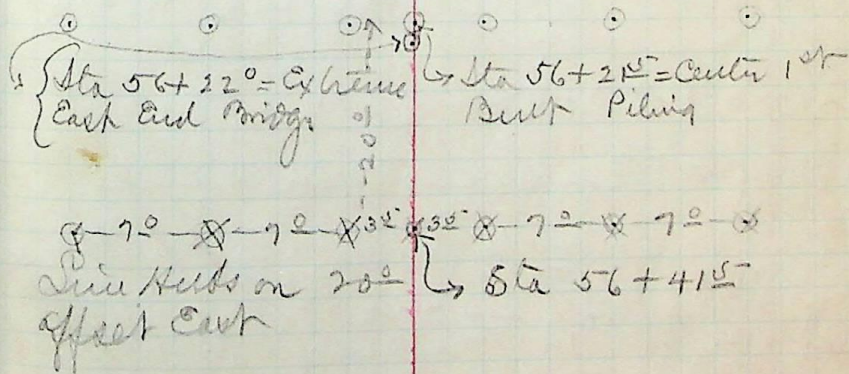 Sta 56+22⁰ = Extreme
East End Bridge
Sta 56+21⁵ = Center 1st
Bent Piling
20⁰
7⁰ 7⁰ 3⁵ 3⁵ 7⁰ 7⁰
Line Hubs on 20⁰
offset East
Sta 56+41⁵